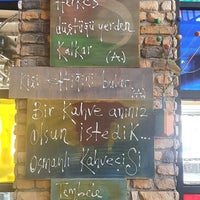 Herkes
düştüğü yerden
Kalkar
(At.)
Kişi ettiğini bulur..
Bir Kahve anınız
olsun istedik...
Osmanlı Kahvecisi
Tembele